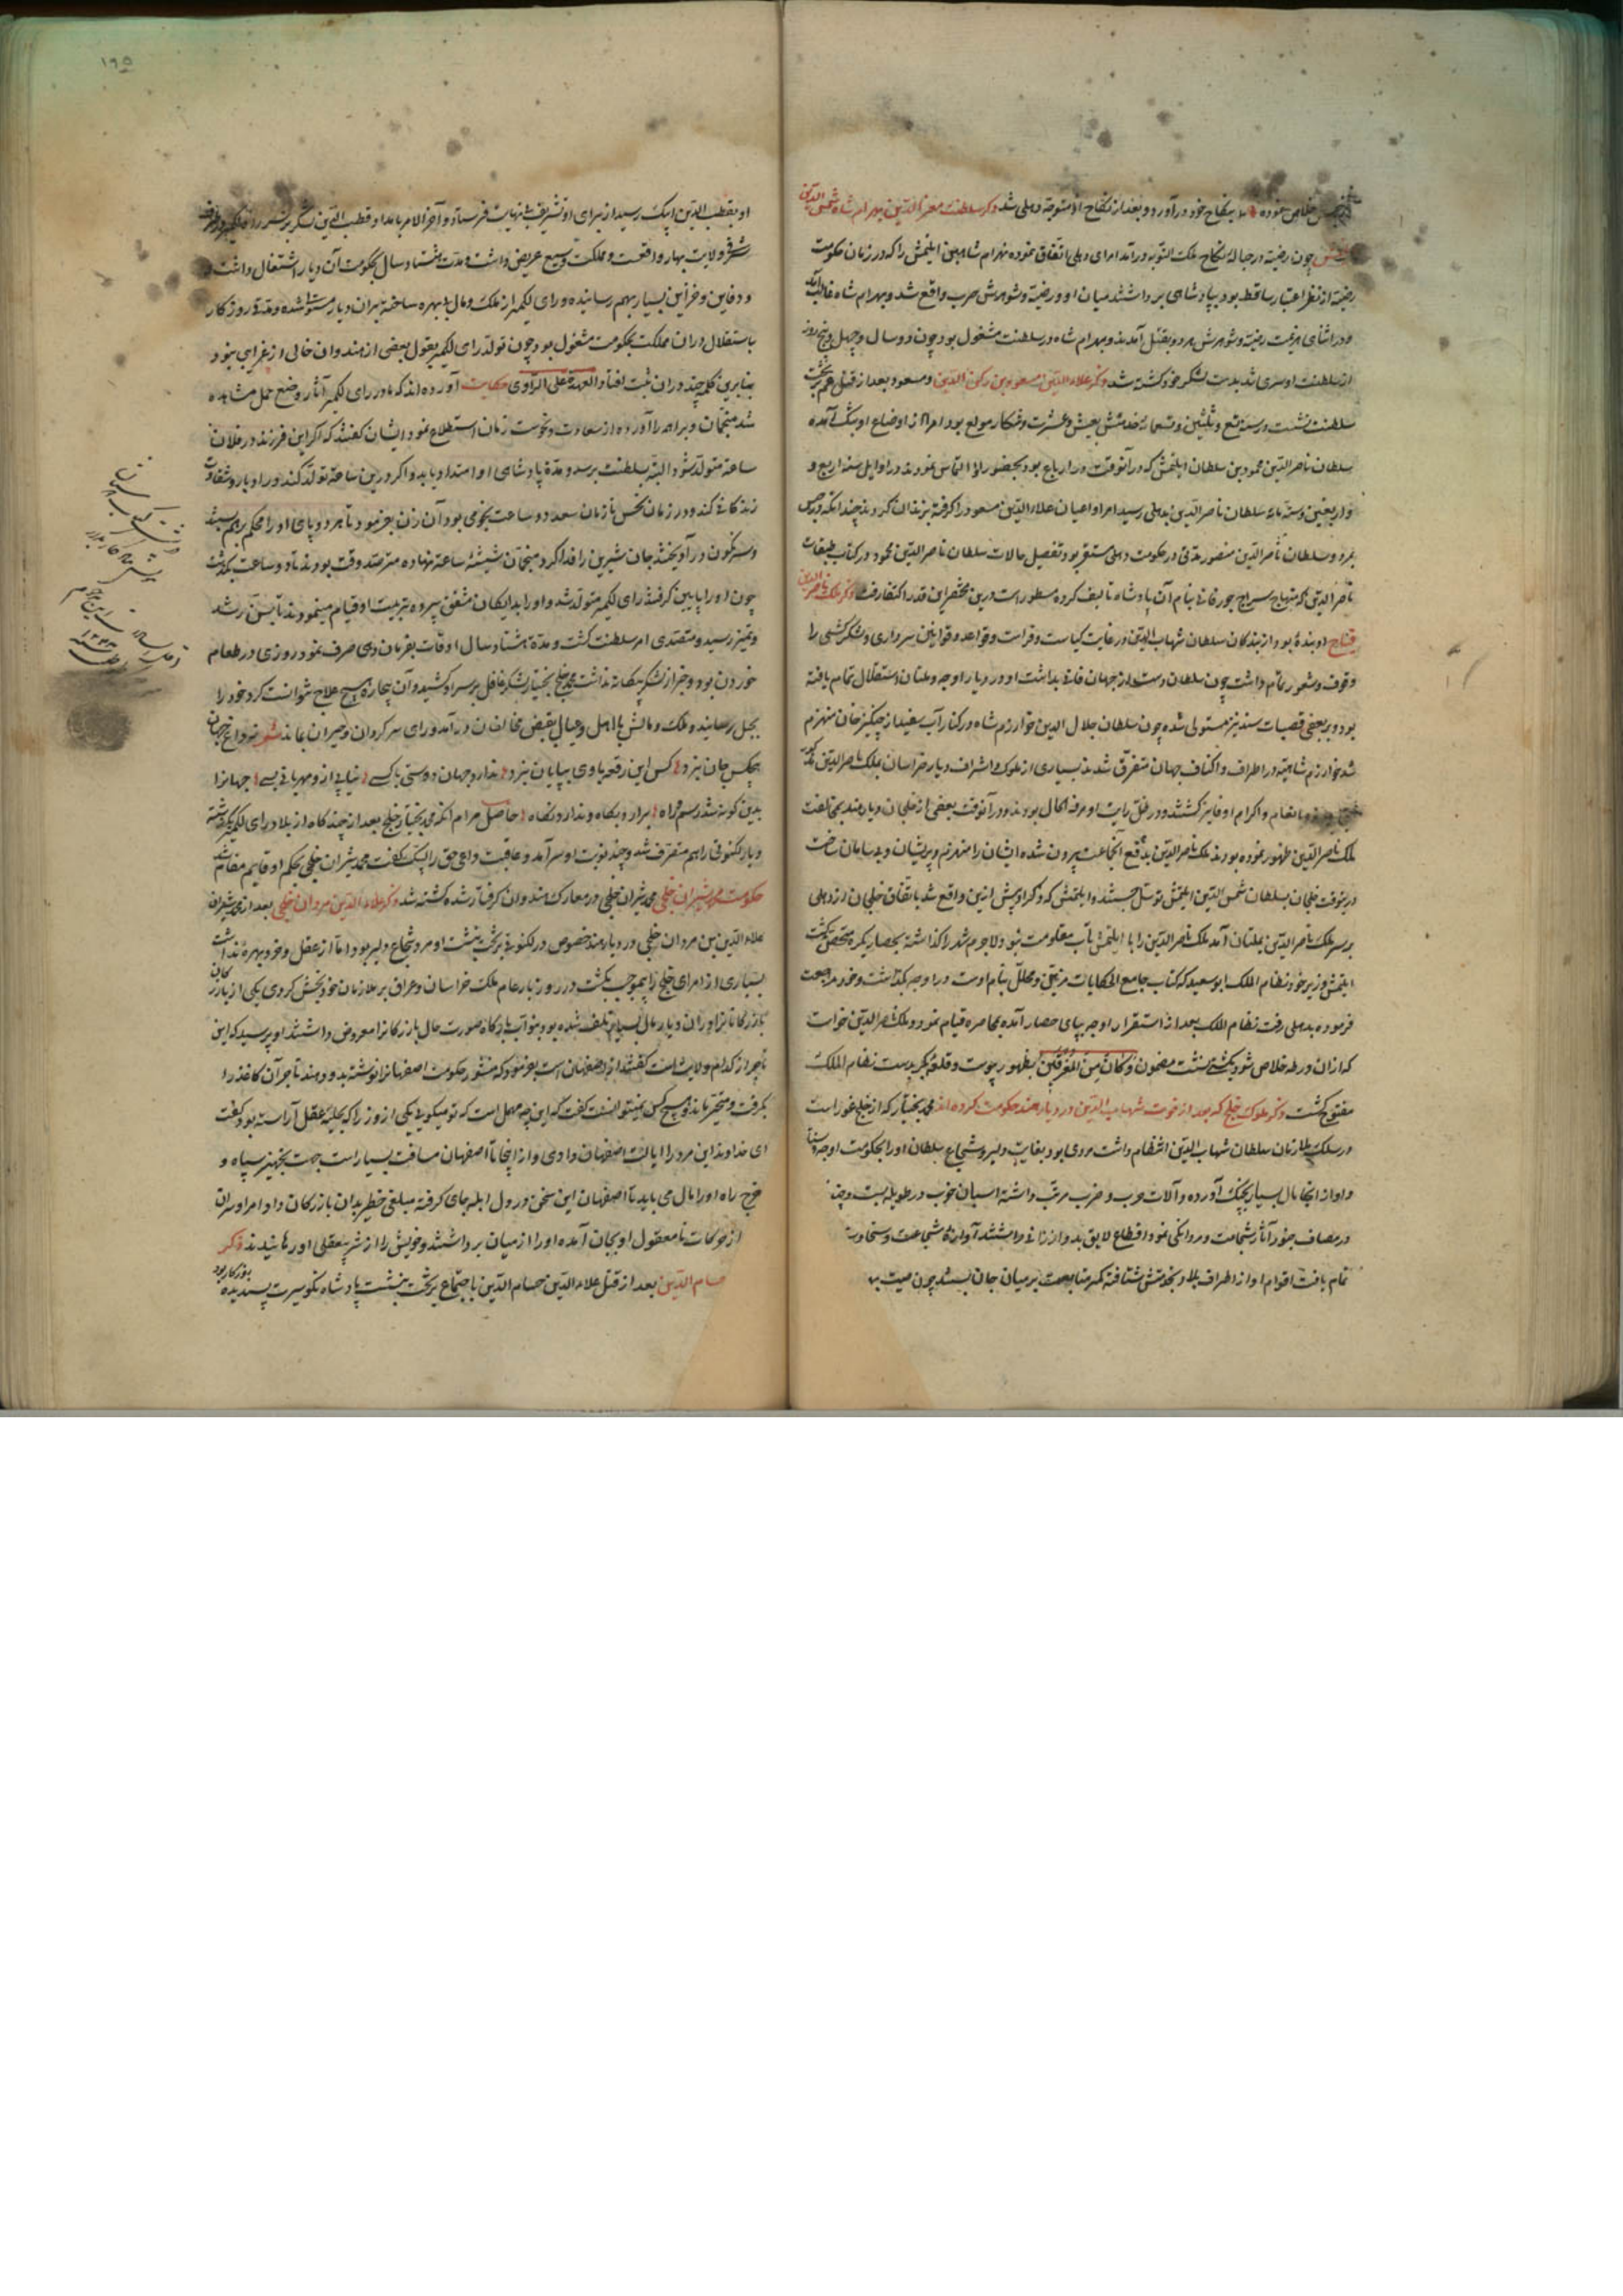 خلاص نموده بنکاح خود درآورد و بعد از نکاح او متوجه دهلی شد ذکر سلطنت معز الدین بهرام شاه شمس الدین
چون رضیه در حباله نکاح ملک التونیه درآمد امرای دهلی اتفاق نموده بهرام شاه بن ایلتمش را که در زمان حکومت
رضیه از نظر اعتبار ساقط بود بپادشاهی برداشتند میان او و رضیه و شوهرش حرب واقع شد و بهرام شاه غالب آمد
و در اثنای هزیمت رضیه و شوهرش هر دو بقتل آمدند و بهرام شاه در سلطنت مشغول بود چون دو سال و چهل و پنج روز
از سلطنت او سپری شد بدست لشکر خود کشته شد ذکر علاء الدین مسعود بن رکن الدین و مسعود بعد از قتل عم بر تخت
سلطنت نشست در سنه تسع و ثلثین و ستمائه بعیش و عشرت و شکار مولع بود امرا از اوضاع او بتنگ آمده
سلطان ناصر الدین محمود بن سلطان ایلتمش که در آنوقت در بود بحضور او التماس نمودند در اوایل سنه اربع و
و اربعین و ستمائه سلطان ناصر الدین بدهلی رسید امرا و اعیان علاء الدین مسعود را گرفته بزندان کردند چندانکه در حبس
بمرد و سلطان ناصر الدین منصور مدتی در حکومت دهلی مستقر بود و تفصیل حالات سلطان ناصر الدین محمود در کتاب طبقات
ناصر الدین که منهاج سراج جورجانی بنام آن پادشاه تالیف کرده مسطور است درین مختصر این قدر اکتفا رفت ذکر ملک ناصر الدین
قباج او بنده بود از بندگان سلطان شهاب الدین در غایت کیاست و فراست و قواعد و قوانین سرداری و لشکرکشی را
وقوف و شعور تمام داشت چون سلطان دست از جهان فانی بداشت او در دیار اوجه و ملتان استقلال تمام یافته
بود و بر بعضی قصبات سند نیز مستولی شده چون سلطان جلال الدین خوارزم شاه در کنار آب سند از چنگیز خان منهزم
شد خوارزم شاهیه در اطراف و اکناف جهان متفرق شدند بسیاری از ملوک و اشراف دیار خراسان بملک ناصر الدین
بانعام و اکرام او فایز گشتند و در ظل رایت او مرفه الحال بودند و در آنوقت بعضی از خلجان و دیار هند بمخالفت
ملک ناصر الدین ظهور نموده بودند ملک ناصر الدین بدفع آنجماعت بیرون شده ایشان را منهزم و پریشان و بی سامان ساخت
درینوقت خلجان بسلطان شمس الدین ایلتمش توسل جستند و ایلتمش که ذکر او پیش ازین واقع شد باتفاق خلجان از دهلی
بر سر ملک ناصر الدین بملتان آمد ملک ناصر الدین را با ایلتمش تاب مقاومت نبود لاجرم شهر را گذاشته بحصار بکر متحصن گشت
ایلتمش وزیر خود نظام الملک ابو سعید که کتاب جامع الحکایات مزین و محلل بنام اوست در اوجه بگذاشت و خود مراجعت
فرموده بدهلی رفت نظام الملک بعد از استقرار اوجه بپای حصار آمده بمحاصره قیام نمود و ملک ناصر الدین خواست
که از آن ورطه خلاص شود بکشتی نشست مضمون و کان من المغرقین بظهور پیوست و قلعه بکر بدست نظام الملک
مفتوح گشت ذکر ملوک خلج که بعد از فوت شهاب الدین در دیار هند حکومت کرده اند محمد بختیار که از خلج غور است
در سلک ملازمان سلطان شهاب الدین انتظام داشت مردی بود بغایت دلیر و شجاع سلطان او را بحکومت اوجه
و او از آنجا مال بسیار بچنگ آورده و آلات حرب و ضرب مرتب داشته اسبان خوب در طویله بست و چند
در مصاف جنود آثار شجاعت و مردانگی نمود اقطاع لایق بدو ارزانی داشتند آوازه شجاعت و سخاوت
تمام یافت اقوام او از اطراف بلاد بخدمتش شتافته کمر متابعت بر میان جان بستند چون صیت
۱۹۵
او بقطب الدین ایبک رسید از برای او تشریف بی نهایت فرستاد و آخر الامر بامداد قطب الدین لشکر بر سر رای لکمیر
شرقی ولایت بهار واقعست و مملکت وسیع عریض داشت و مدت هشتاد سال بحکومت آن دیار اشتغال داشت
و دفاین و خزاین بسیار بهم رسانیده و رای لکمیر از ملک و مال بی بهره ساخته بر آن دیار مستولی شده و مدتی روزگار
باستقلال در آن مملکت بحکومت مشغول بود چون تولد رای لکمیر بقول بعضی از هندوان خالی از غرابی نبود
بنابرین کلمه چند در آن ثبت افتاد و العهدة علی الراوی حکایت آورده اند که مادر رای لکمیر آثار وضع حمل مشاهده
شد منجمان و براهمه را آورده از سعادت و نحوست زمان استطلاع نمود ایشان گفتند که اگر این فرزند در فلان
ساعت متولد شود البته بسلطنت برسد و مدة پادشاهی او امتداد یابد و اگر درین ساعت تولد کند در ادبار و شقاوت
زندگانی کند و در زمان نحس تا زمان سعد دو ساعت نجومی بود آن زن بفرمود تا هر دو پای او را محکم بهم بستند
و سرنگون در آویختند جان شیرین را فدا کرد و منجمان شیشه ساعت نهاده مترصد وقت بودند تا دو ساعت بگذشت
چون او را پایین گرفتند رای لکمیر متولد شد و او را دایگان مشفق سپرده بتربیت او قیام مینمودند تا بسن رشد
و تمیز رسید و متصدی امر سلطنت گشت و مدة هشتاد سال اوقات بفرمان دهی صرف نمود روزی در طعام
خوردن بود و خبر از لشکر بیگانه نداشت محمد خلج بختیار لشکر غافل بر سر او کشید و آن بیچاره هیچ علاج نتوانست کرد خود را
بجبل رسانید و ملک و مالش با اهل و عیال بقبض مخالفان درآمد و رای سرگردان و حیران بماند شعر
هیچکس جان نبرد کس این رقعه یاوی بپایان نبرد ندارد جهان دوستی با کسی نیابی از و مهربانی بسی جهانرا
بدین گونه شد رسم و راه برارد بگاه و ندارد نگاه حاصل مرام آنکه محمد بختیار خلج بعد از چندگاه از بلاد رای لکمیر
و دیار لکنوتی را هم متصرف شد و چند نوبت او سرآمد و عاقبت داعی حق را لبیک گفت محمد شیران خلجی بحکم او قایم مقام شد
حکومت محمد شیران خلجی محمد شیران خلجی در معارک هندوان گرفتار شده کشته شد ذکر علاء الدین مردان خلجی بعد از محمد شیران
علاء الدین بن مردان خلجی در دیار هند خصوص در لکنوتی بر تخت بنشست او مرد شجاع و دلیر بود اما از عقل و خرد بهره نداشت
بسیاری از امرای خلج را بیموجب بکشت در روز بار عام ملک خراسان و عراق بر ملازمان خود بخش کردی یکی از
بازرگانانرا در آن دیار مال بسیار تلف شده بود بنواب بارگاه صورت حال بازرگانرا معروض داشتند او پرسید که این
تاجر از کدام ولایت است گفتند از اصفهان است بفرمود که منشور حکومت اصفهانرا نوشته بدو دهند تاجر آن کاغذ را
بگرفت و متحیر بماند و هیچ کس نمیتوانست گفت که این چه مهمل است که تو میگویی یکی از وزرا که بحلیه عقل آراسته بود گفت
ای خداوند این مرد را ایالت اصفهان دادی و از اینجا تا اصفهان مسافت بسیار است جهت تجهیز سپاه و
خرج راه او را مال می باید تا اصفهان این سخن در دل ابله جای گرفته مبلغی خطیر بدان بازرگان داد امرا و سران
از حرکات نامعقول او بجان آمده او را از میان برداشتند و خویش را از شر بیعقلی او رهانیدند ذکر
حسام الدین بعد از قتل علاء الدین حسام الدین باجتماع بر تخت بنشست پادشاه نکو سیرت پسندیده